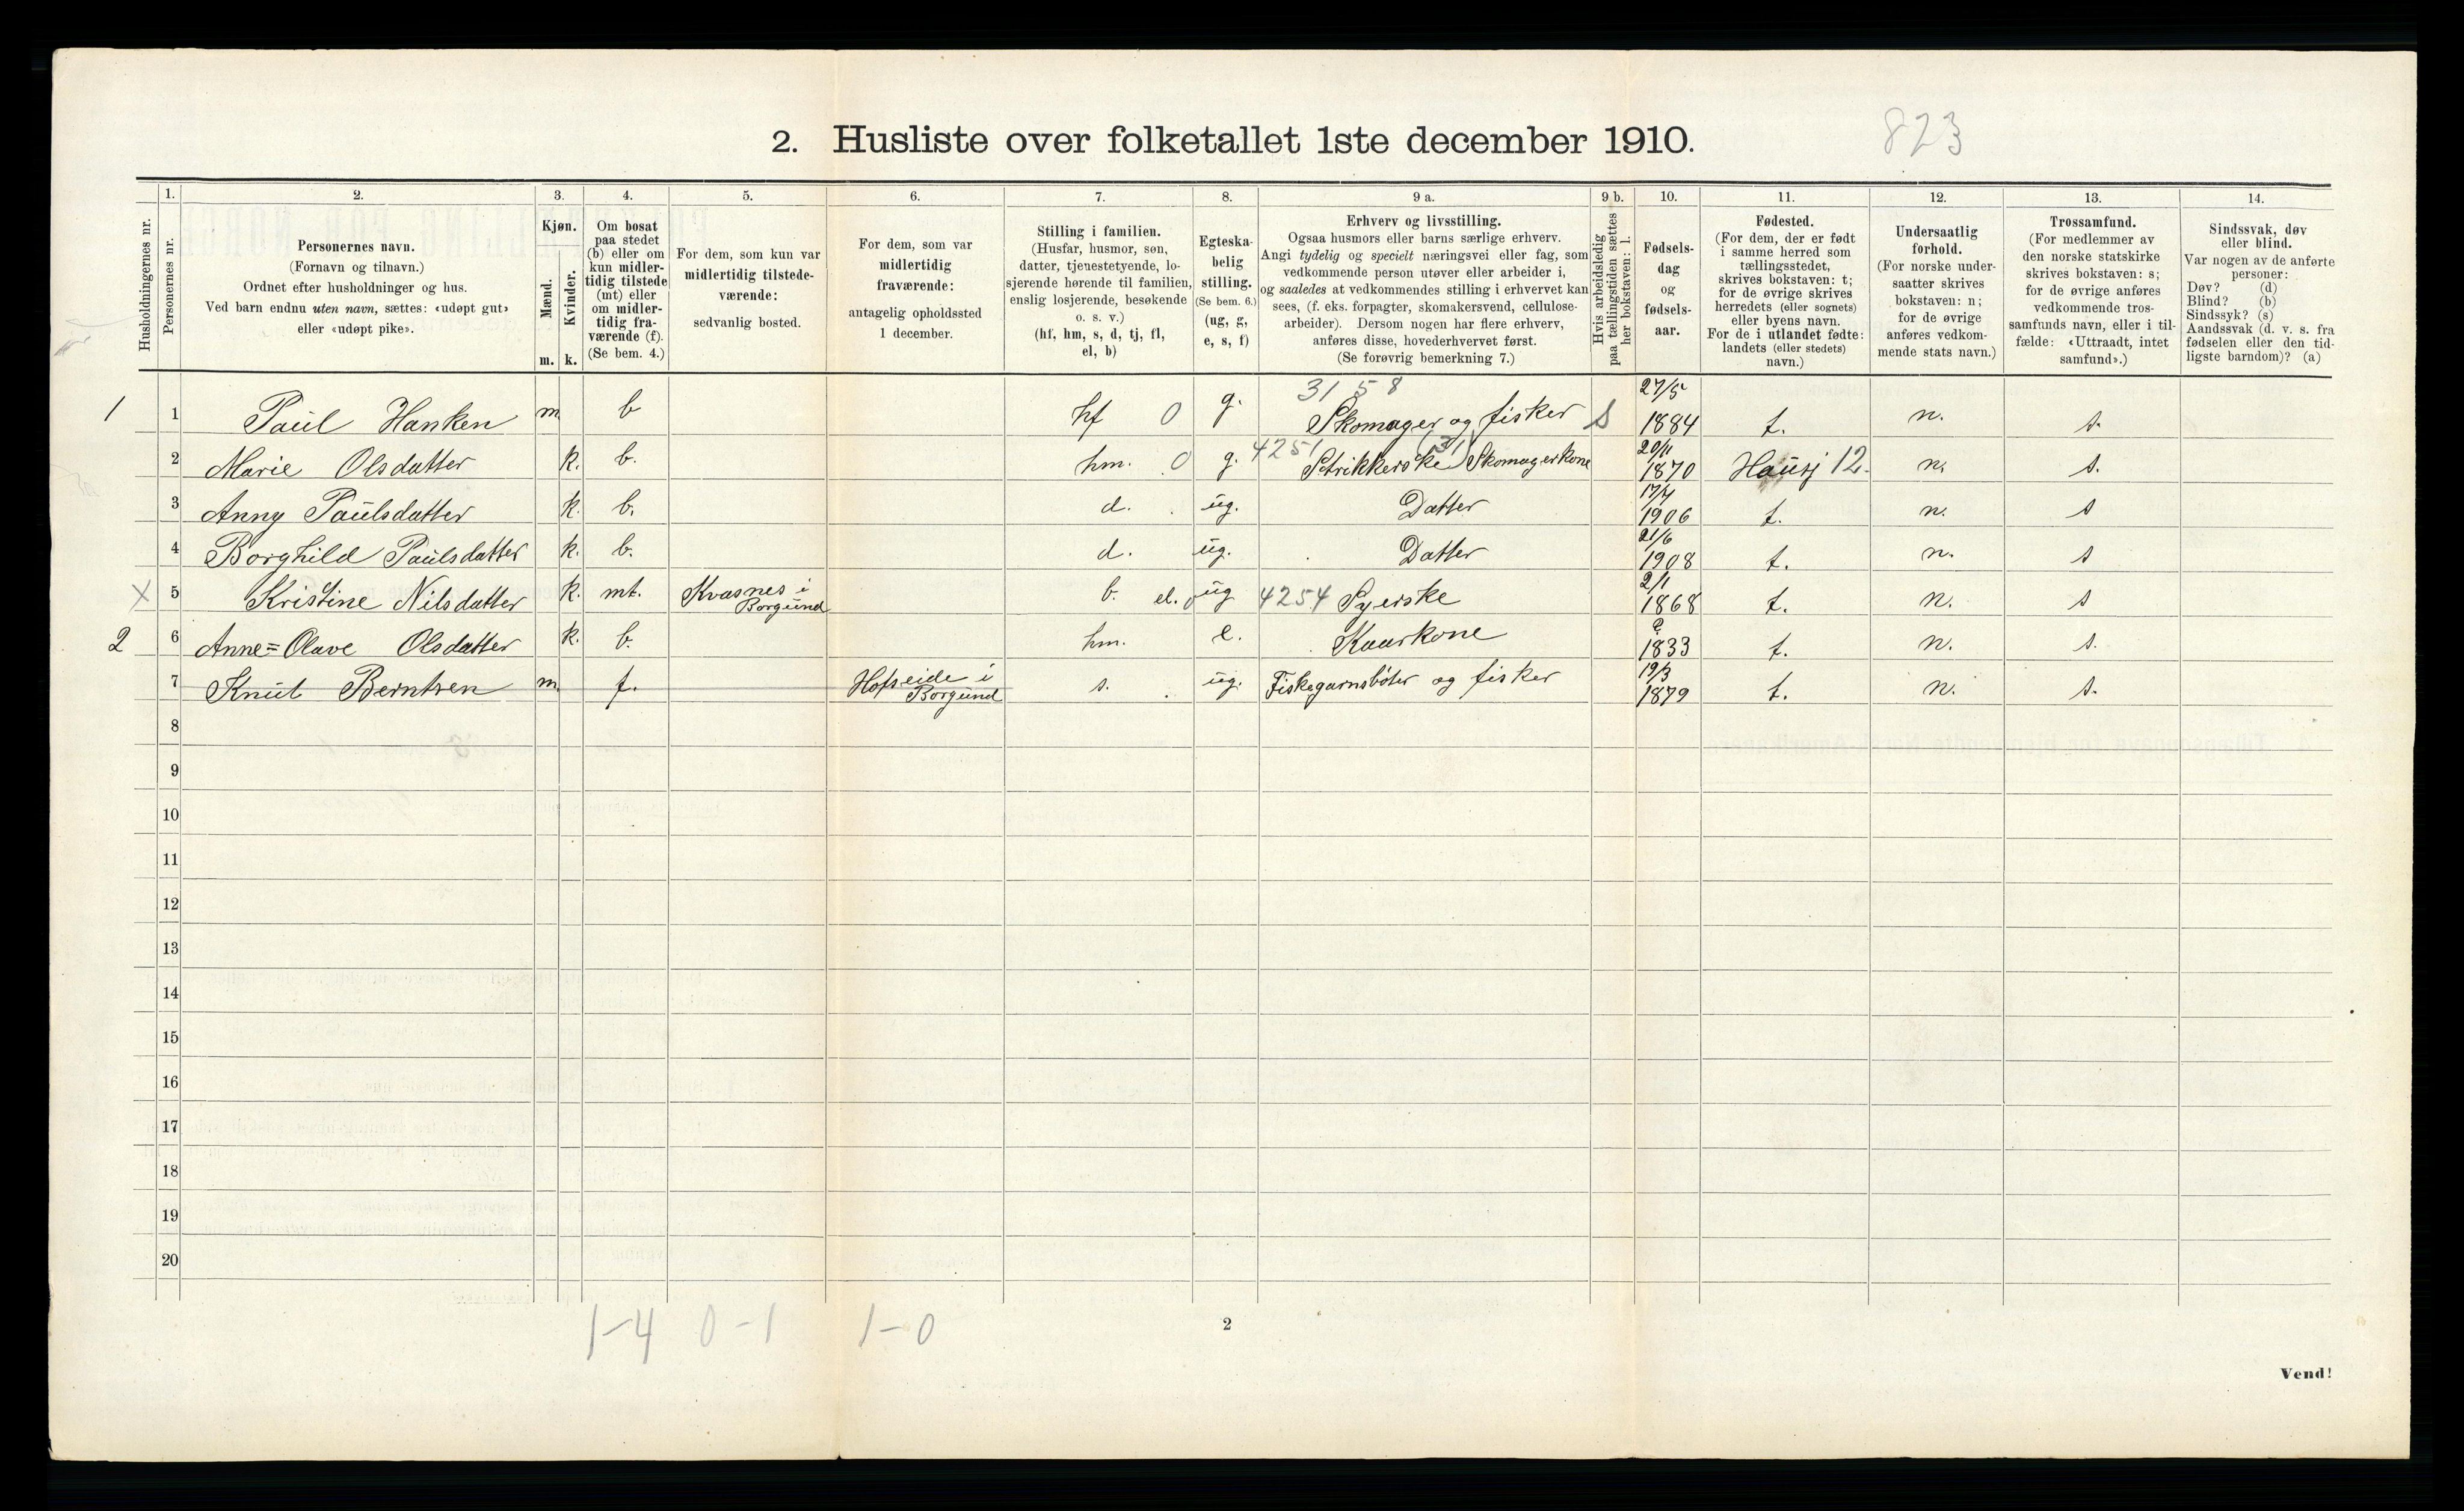 2. Husliste over folketallet 1ste december 1910.
823
Husholdningernes nr.
1.
Personernes nr.
2.
Personernes navn.
(Fornavn og tilnavn.)
Ordnet efter husholdninger og hus.
Ved barn endnu uten navn, sættes: «udøpt gut»
eller «udøpt pike».
3.
Kjøn.
Mænd.
Kvinder.
m. k.
4.
Om bosat
paa stedet
(b) eller om
kun midler-
tidig tilstede
(mt) eller
om midler-
tidig fra-
værende (f).
(Se bem. 4.)
5.
For dem, som kun var
midlertidig tilstede-
værende:
sedvanlig bosted.
6.
For dem, som var
midlertidig
fraværende:
antagelig opholdssted
1 december.
7.
Stilling i familien.
(Husfar, husmor, søn,
datter, tjenestetyende, lo-
sjerende hørende til familien,
enslig losjerende, besøkende
o. s. v.)
(hf, hm, s, d, tj, fl,
el, b)
8.
Egteska-
belig
stilling.
(Se bem. 6.)
(ug, g,
e, s, f)
9 a.
Erhverv og livsstilling.
Ogsaa husmors eller barns særlige erhverv.
Angi tydelig og specielt næringsvei eller fag, som
vedkommende person utøver eller arbeider i,
og saaledes at vedkommendes stilling i erhvervet kan
sees, (f. eks. forpagter, skomakersvend, cellulose-
arbeider). Dersom nogen har flere erhverv,
anføres disse, hovederhvervet først.
(Se forøvrig bemerkning 7.)
9 b.
Hvis arbeidsledig
paa tællingstiden sættes
her bokstaven: l.
10.
Fødsels-
dag
og
fødsels-
aar.
11.
Fødested.
(For dem, der er født
i samme herred som
tællingsstedet,
skrives bokstaven: t;
for de øvrige skrives
herredets (eller sognets)
eller byens navn.
For de i utlandet fødte:
landets (eller stedets)
navn.)
12.
Undersaatlig
forhold.
(For norske under-
saatter skrives
bokstaven: n;
for de øvrige
anføres vedkom-
mende stats navn.)
13.
Trossamfund.
(For medlemmer av
den norske statskirke
skrives bokstaven: s;
for de øvrige anføres
vedkommende tros-
samfunds navn, eller i til-
fælde: «Uttraadt, intet
samfund».)
14.
Sindssvak, døv
eller blind.
Var nogen av de anførte
personer:
Døv? (d)
Blind? (b)
Sindssyk? (s)
Aandssvak (d. v. s. fra
fødselen eller den tid-
ligste barndom)? (a)
3158 27/5
1 1 Paul Hanken m b hf 0 g. Skomager og fisker S 1884 t. n. s.
4251 (31) 20/11
2 Marie Olsdatter k. b. hm. 0 g. Strikkerske Skomagerkone 1870 Hausj 12. n. s.
17/4
3 Anny Paulsdatter k. b. d. ug. Datter 1906 t. n. s
21/6
4 Borghild Paulsdatter k. b. d. ug. Datter 1908 t. n. s
2/1
X 5 Kristine Nilsdatter k. mt. Kvasnes i Borgund b. el. ug 4254 Syerske 1868 t. n. s
2 6 Anne=Olave Olsdatter k. b. hm. e. Kaarkone 1833 t. n. s.
19/3
7 Knut Berntsen m. f. Hofseide i Borgund s. ug. Fiskegarnsbøter og fisker 1879 t. n. s.
8
9
10
11
12
13
14
15
16
17
18
19
20
1-4 0-1 1-0
2
Vend!